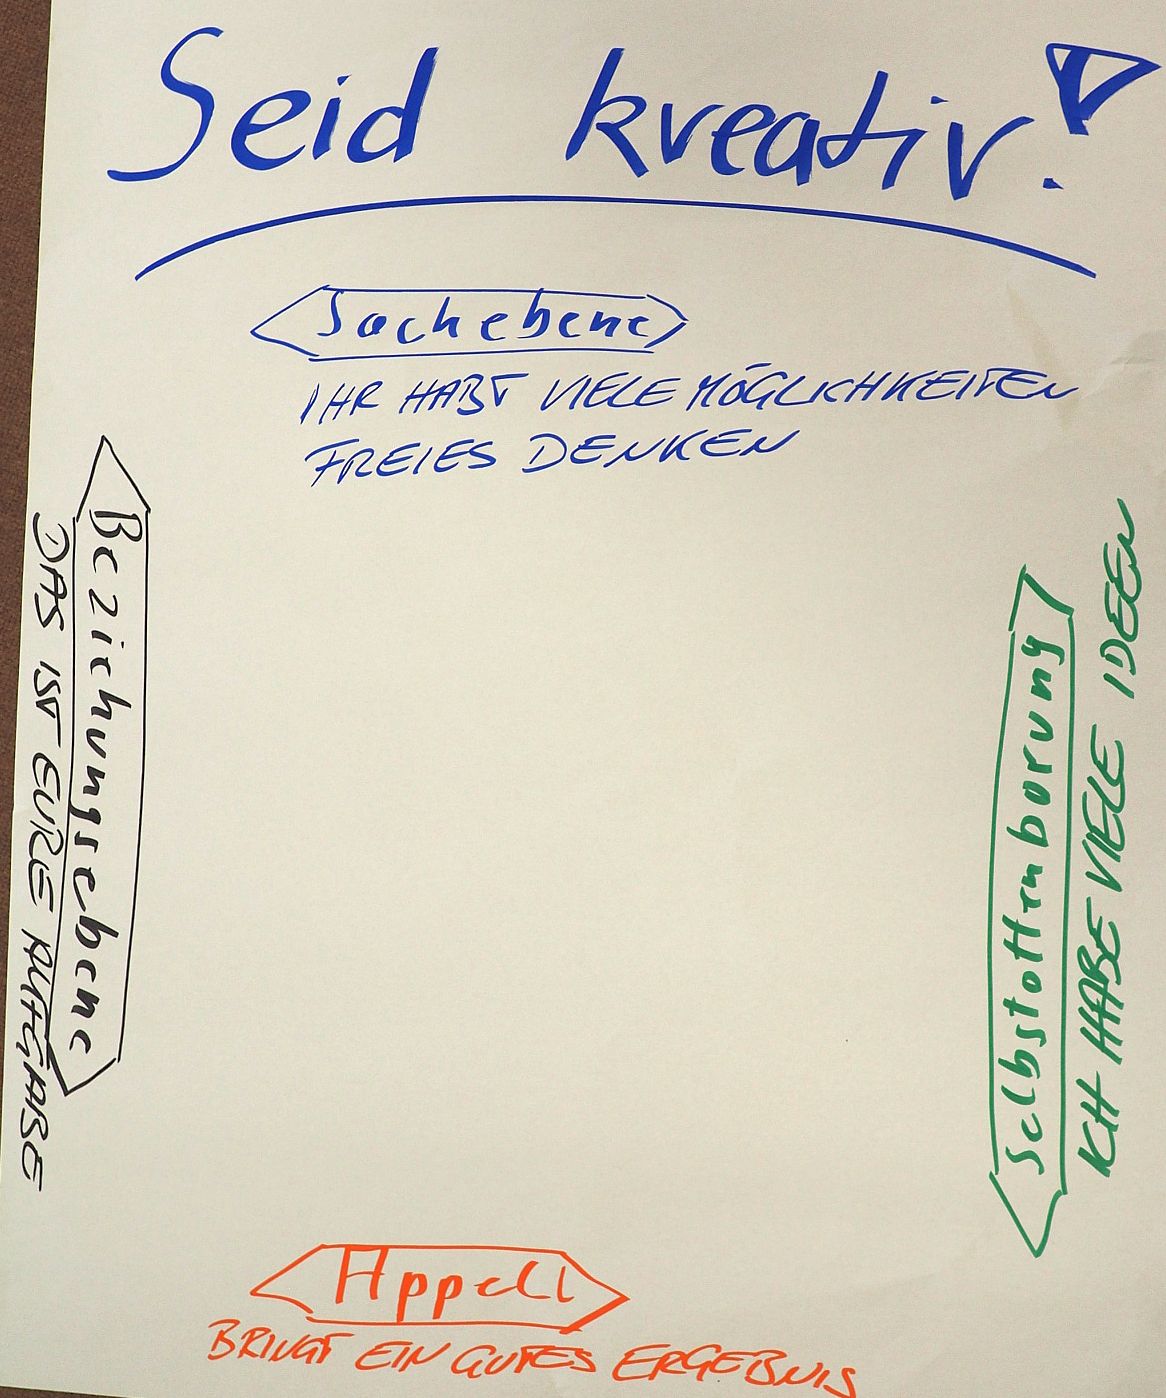 Seid kreativ!
Sachebene
IHR HABT VIELE MÖGLICHKEITEN
FREIES DENKEN
Beziehungsebene
DAS IST EURE AUFGABE
Selbstoffenborung
ICH HABE VIELE IDEEN
Appell
BRINGT EIN GUTES ERGEBNIS